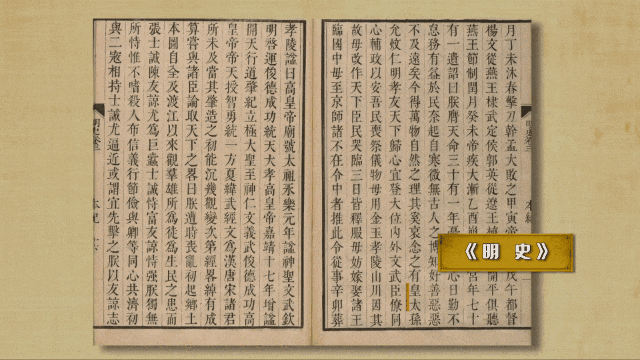 月丁未沐春擊刀幹孟大敗之甲寅帝戊午都督
楊文從燕王棣武定侯郭英從遼王植開平俱聽
燕王節制閏月癸未帝疾大漸乙酉崩宮年七十
有一遺詔曰朕膺天命三十有一年憂心日勤不
怠務有益於民奈起自寒微無古人之博知好善惡惡
不及遠矣今得萬物自然之理其奚哀念之有皇太孫
允炆仁明孝友天下歸心宜登大位內外文武臣僚同
心輔政以安吾民喪祭儀物毋用金玉孝陵山川因其
故毋改作天下臣民哭臨三日皆釋服毋妨嫁娶諸王
臨國中毋至京師諸不在令中者推此令從事辛卯葬
孝陵諡曰高皇帝廟號太祖永樂元年諡神聖文武欽
明啓運俊德成功統天大孝高皇帝嘉靖十七年增諡
開天行道肇紀立極大聖至神仁文義武俊德成功高
皇帝帝天授智勇統一方夏緯武經文爲漢唐宋諸君
所未及當其肇造之初能沉幾觀變次第經畧綽有成
算嘗與諸臣論取天下之畧曰朕遭時喪亂初起鄉土
本圖自全及渡江以來觀羣雄所爲徒爲生民之患而
張士誠陳友諒尤爲巨蠹士誠恃富友諒恃强朕獨無
所恃惟不嗜殺人布信義行節儉與卿等同心共濟初
與二寇相持士誠尤逼近或謂宜先擊之朕以友諒志
明史卷三
本紀
《明 史》